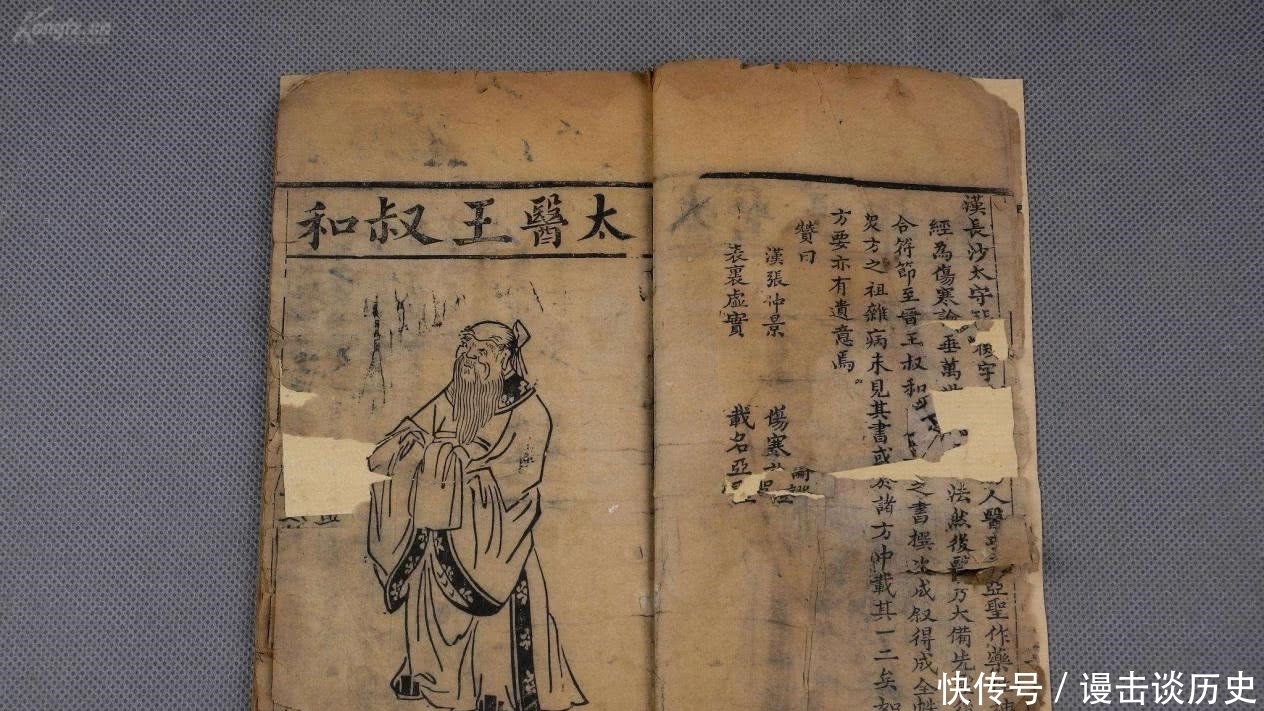 漢長沙太守 字 人醫 亞聖作藥
經為傷寒論垂萬世 法然後醫乃大備先
合符節至晉王叔和 之書撰次成叙得成全
方之祖雜病未見其書或於諸方中載其一二矣如
方要亦有遺意焉
贊曰
漢張仲景 傷寒
表裏虛實 載名亞
太醫王叔和
快传号 / 谩击谈历史